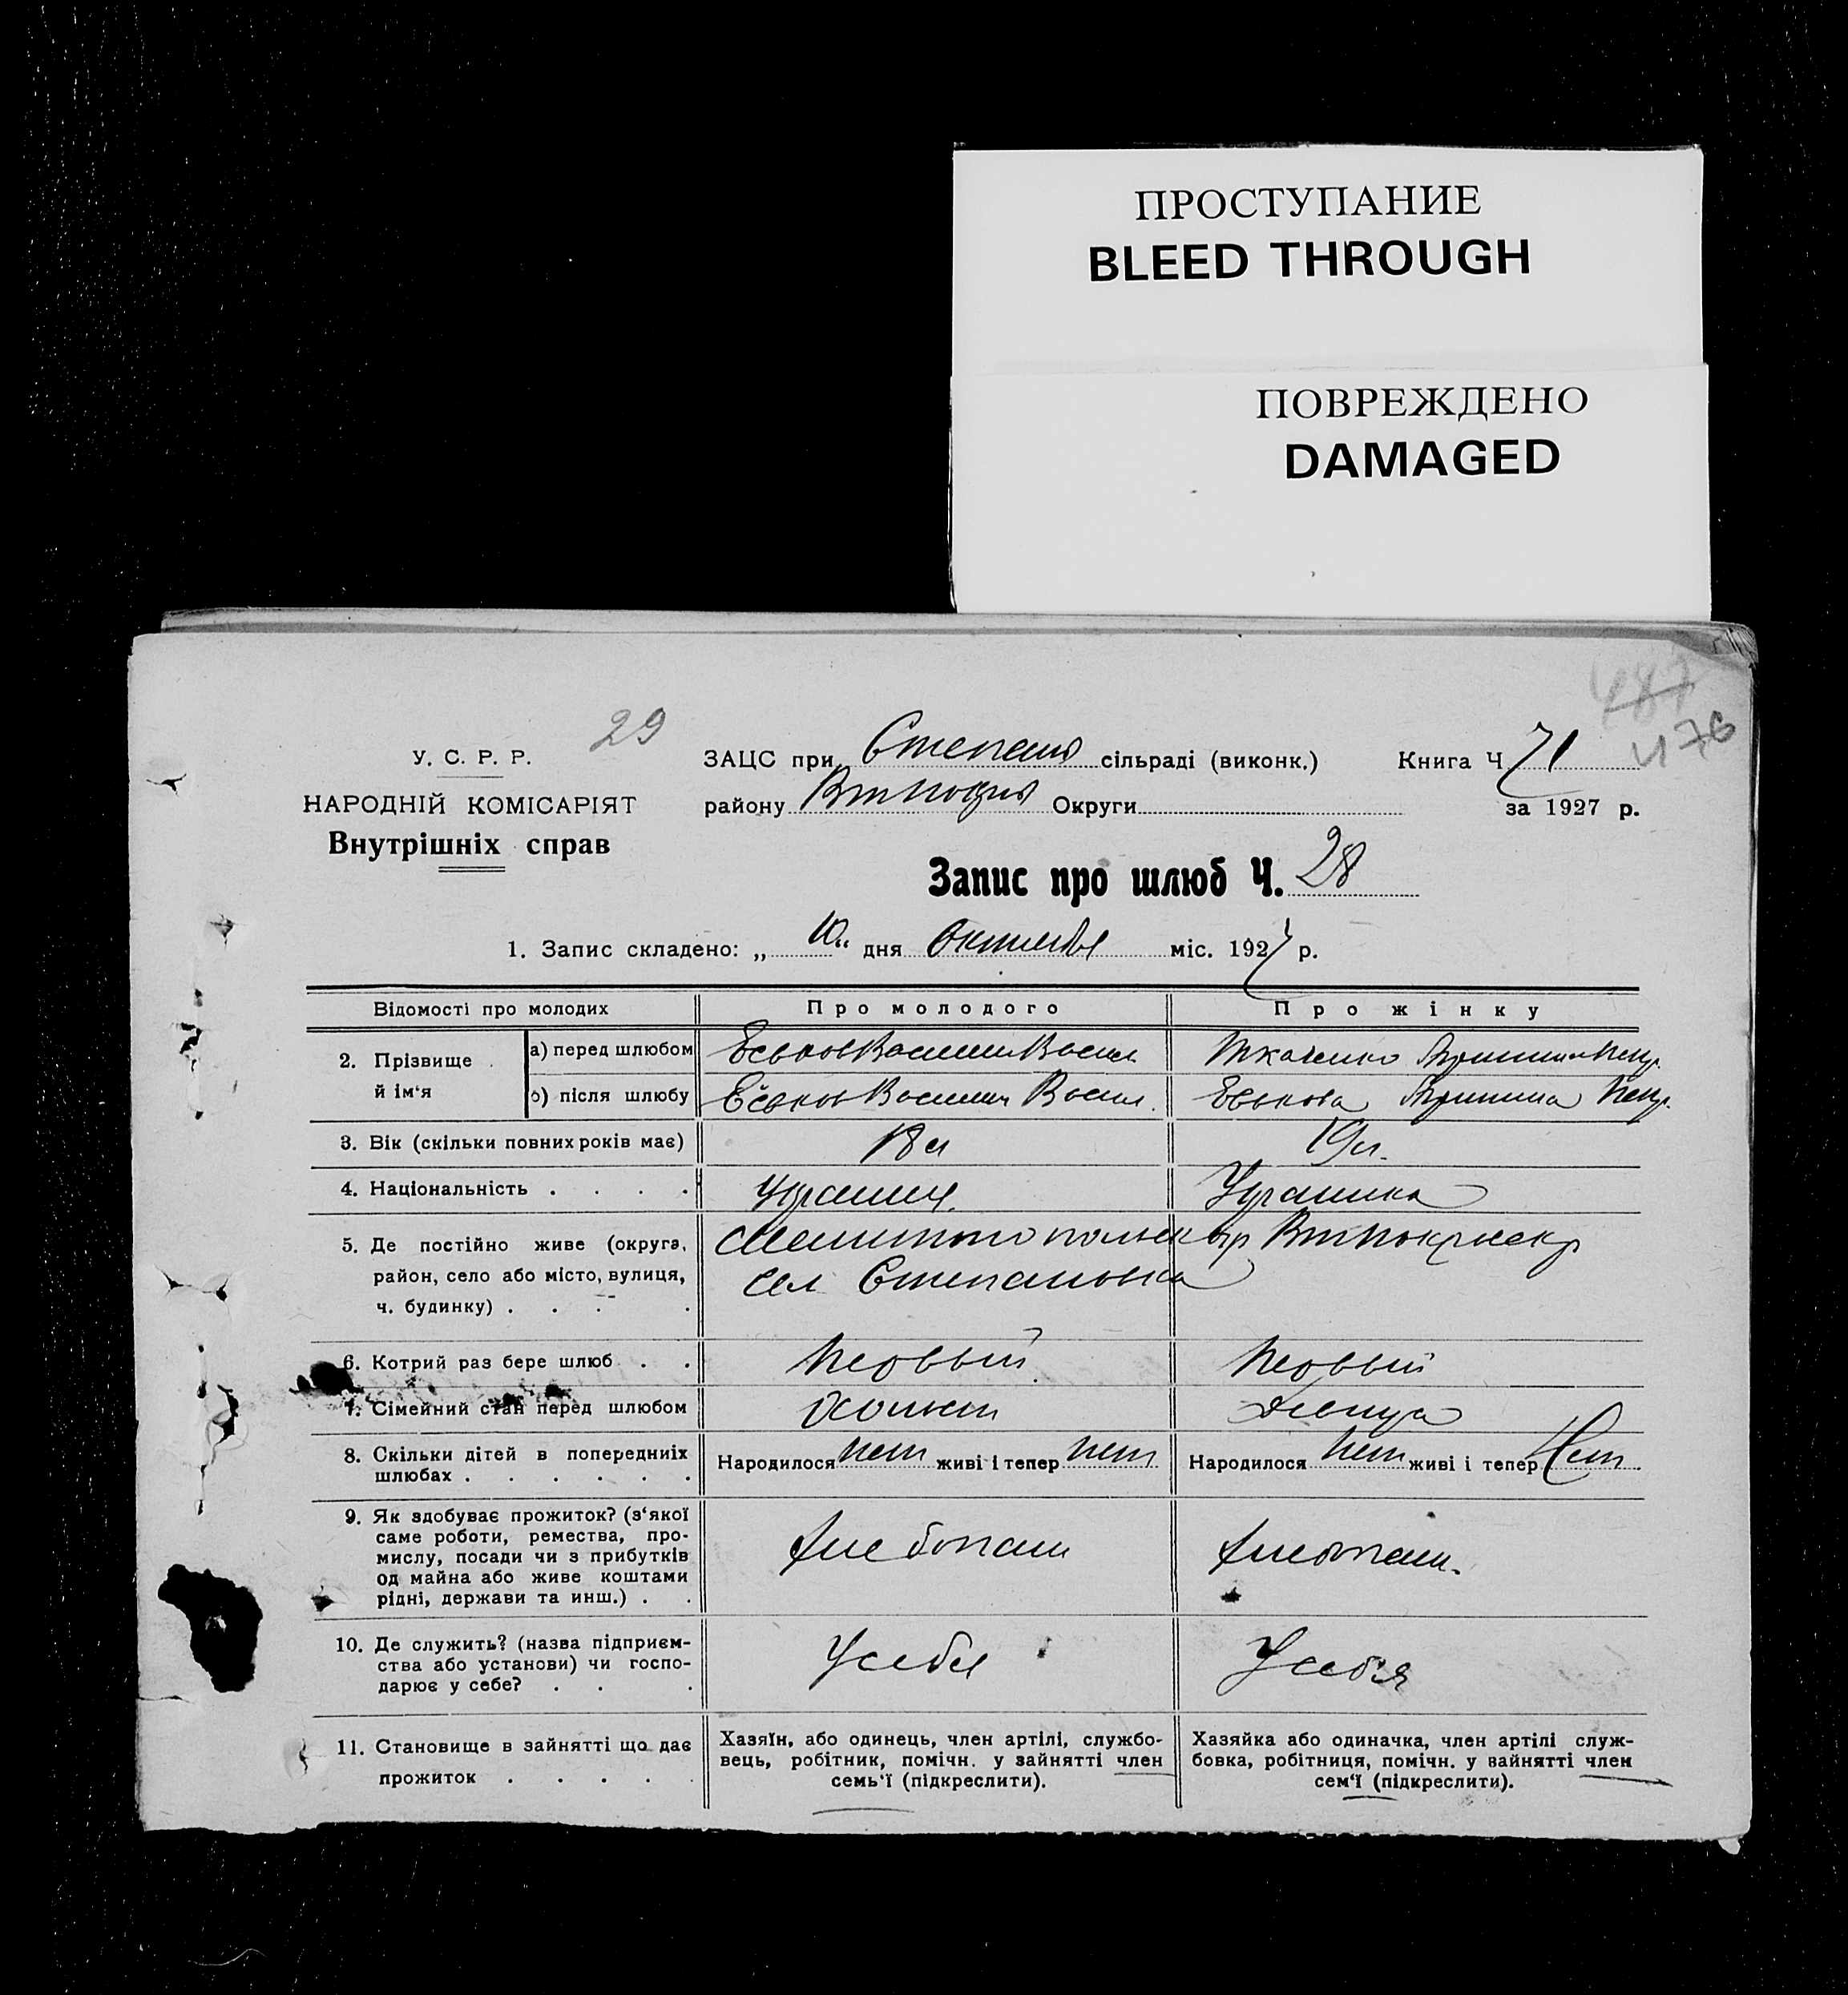 ПРОСТУПАНИЕ
BLEED THROUGH
ПОВРЕЖДЕНО
DAMAGED
487
476
29
У. С. Р. Р.
НАРОДНІЙ КОМІСАРІЯТ
Внутрішніх справ
ЗАЦС при Степан сільраді (виконк.)
району Округи
Книга Ч 71
за 1927 р.
Запис про шлюб Ч. 28
1. Запис складено: „ 10 “ дня Октября міс. 1927 р.
Відомості про молодих Про молодого Про жінку
2. Прізвище й ім‘я
а) перед шлюбом Еськов Василий Васил. Ткаченко Петр.
б) після шлюбу Еськов Василий Васил. Еськова Петр.
3. Вік (скільки повних років має) 18 л 19 л.
4. Національність . . . . Украинец. Украинка
5. Де постійно живе (округа, Мелитопольск окр
район, село або місто, вулиця, сел Степановка
ч. будинку) . . . .
6. Котрий раз бере шлюб . . Первый Первый
7. Сімейний стан перед шлюбом Холост Девица
8. Скільки дітей в попередниіх
шлюбах . . . . . . Народилося нет живі і тепер нет Народилося нет живі і тепер Нет
9. Як здобуває прожиток? (з‘якої
саме роботи, ремества, про-
мислу, посади чи з прибутків
од майна або живе коштами
рідні, держави та инш.) . . Хлебопаш Хлебопаш.
10. Де служить? (назва підприєм-
ства або установи) чи госпо-
дарює у себе? . . . У себя У себя
11. Становище в зайнятті що дає
прожиток . . . . .
Хазяїн, або одинець, член артілі, службо-
вець, робітник, помічн. у зайнятті член
семь‘ї (підкреслити).
Хазяйка або одиначка, член артілі служ-
бовка, робітниця, помічн. у зайнятті член
сем‘ї (підкреслити).